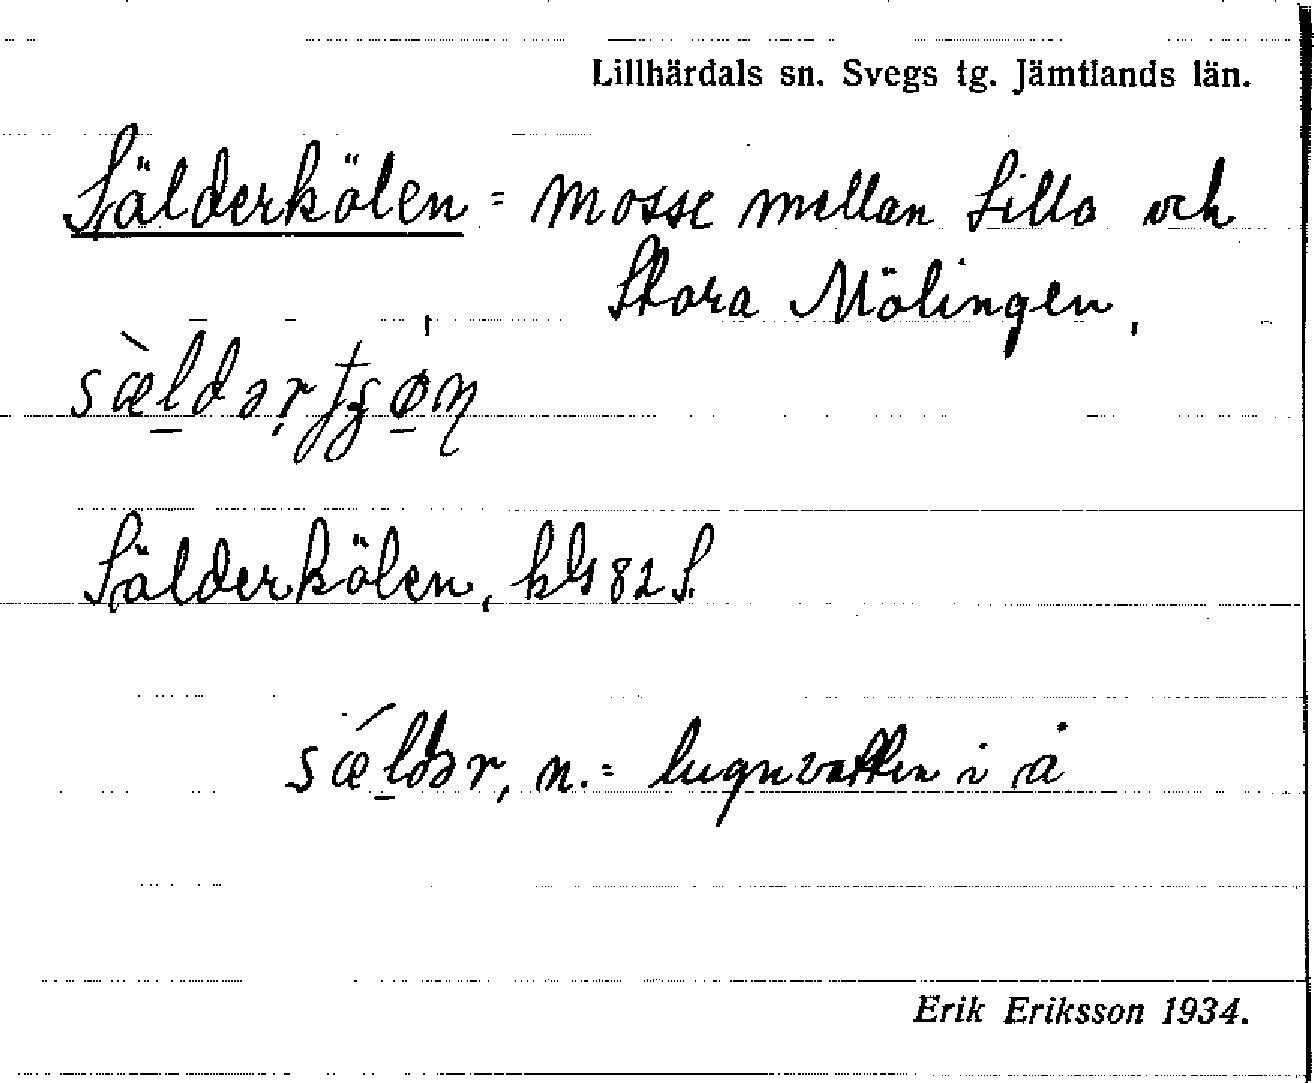 Lillhärdals sn. Svegs tg. Jämtlands län.
Sälderkölen = mosse mellan Lilla och
Stora Mölingen,
Sälderkölen, kbl 82 S.
sǽldər, n. = lugnvatten i å
Erik Eriksson 1934.